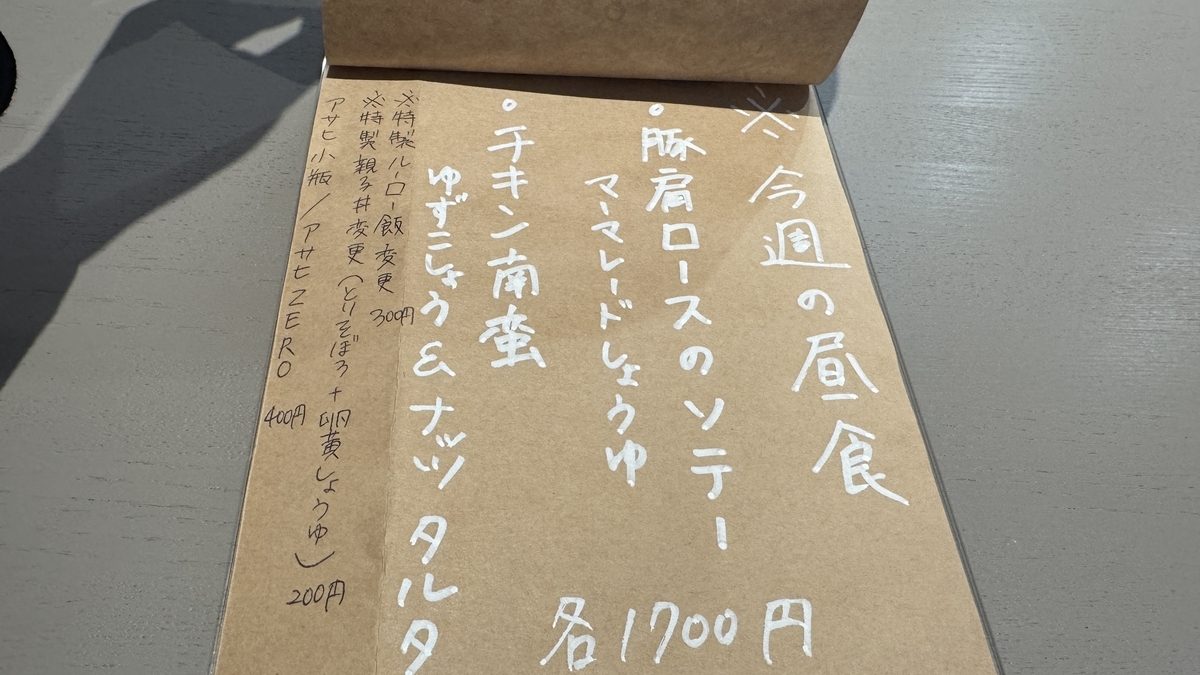 ※今週の昼食
。豚肩ロースのソテー
マーマレードしょうゆ
。チキン南蛮
ゆずこしょう & ナッツ タルタ
各1700円
※特製ルーロー飯変更 300円
※特製親子丼変更(とりそぼろ+卵黄しょうゆ) 200円
アサヒ小瓶/アサヒZERO 400円